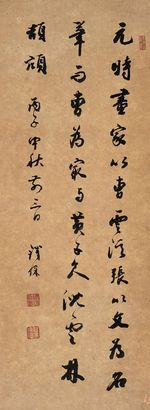 元時畫家以曹雲西張以文為名
筆而曹為最與黃子久沈雲林
頡頏
丙子中秋前三日 鐵保